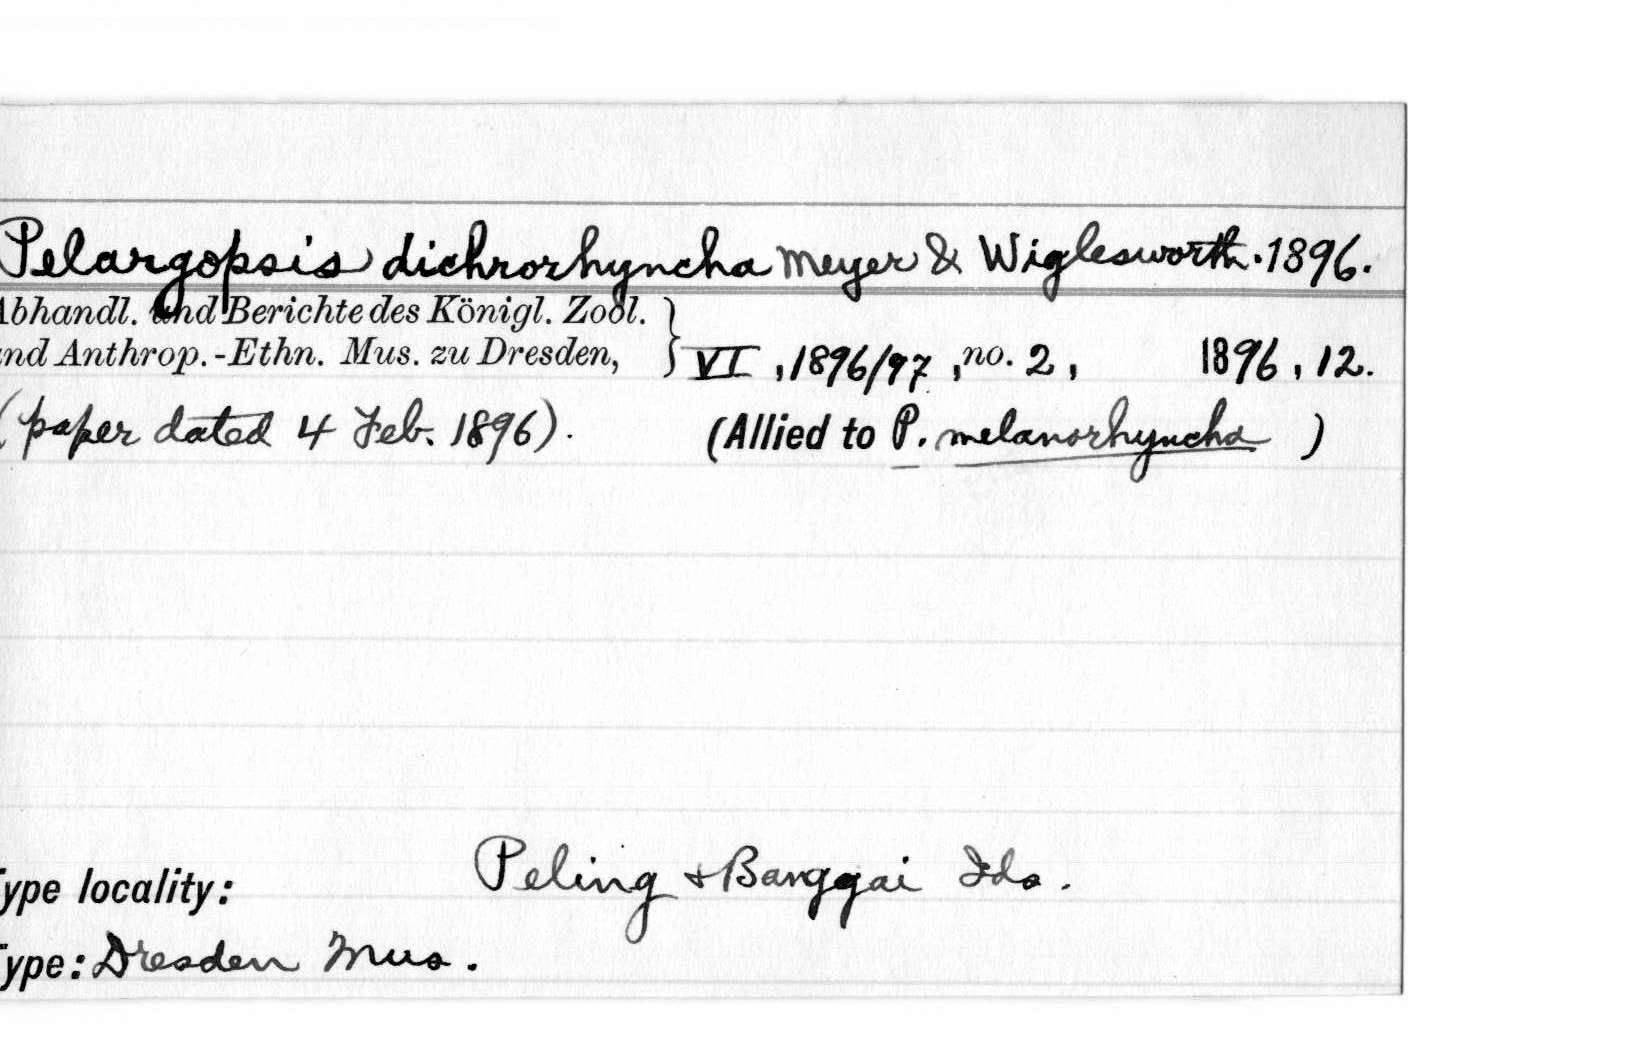 Pelargopsis dichrorhyncha Meyer & Wiglesworth. 1896.
Abhandl. und Berichte des Königl. Zool.
und Anthrop.-Ethn. Mus. zu Dresden, } VI, 1896/97, no. 2, 1896, 12.
(paper dated 4 Feb. 1896). (Allied to P. melanorhyncha )
Type locality: Peling & Banggai Ids.
Type: Dresden Mus.